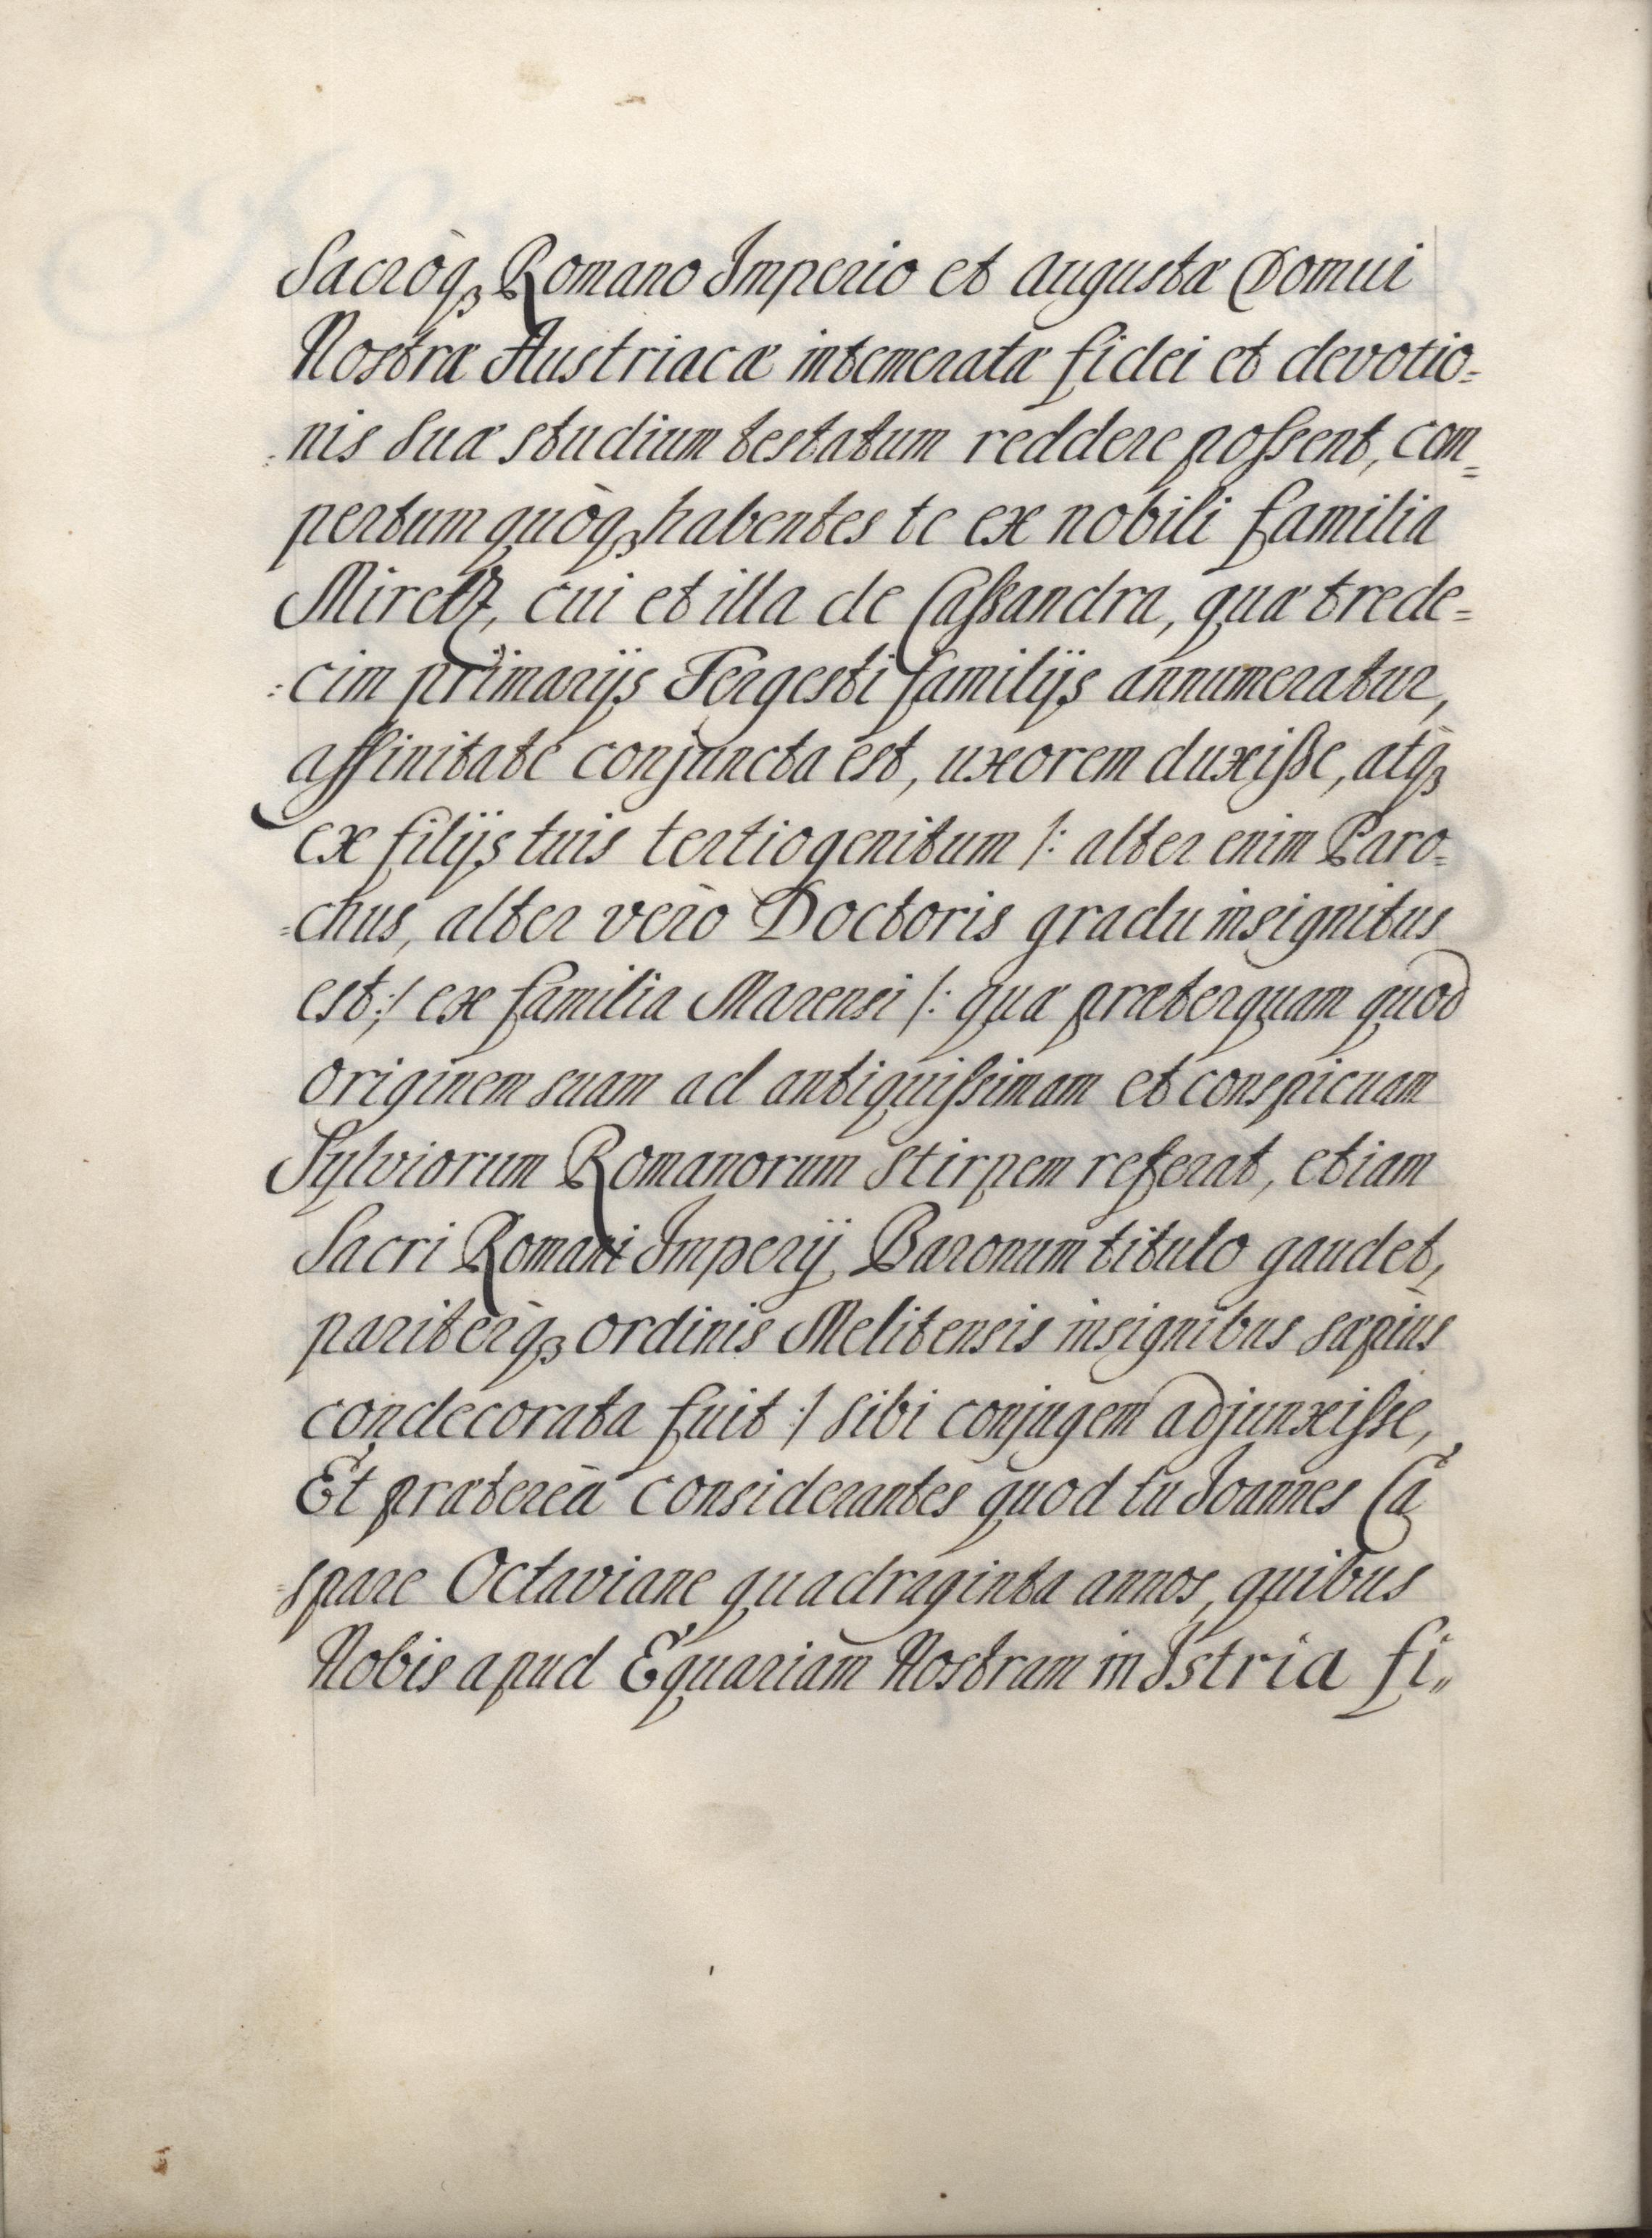 Sacròq₃ Romano Imperio et augustæ Domui
Nostræ Austriacæ intemeratæ fidei et devotio=
:nis suæ studium testatum reddere possent, com=
pertum quòq₃ habentes te ex nobili familia
Mirelz, cui et illa de Cassandra, quæ trede=
:cim primarijs Tergesti familijs annumeratur,
affinitate conjuncta est, uxorem duxisse, atq₃
ex filijs tuis tertiogenitum /: alter enim Paro=
=chus, alter verò Doctoris gradu insignitus
est :/ ex familia Marensi /: quæ præterquam quod
originem suam ad antiquissimam et conspicuam
Sylviorum Romanorum stirpem referat, etiam
Sacri Romani Imperij Baronum titulo gaudet,
paritèrq₃ ordinis Melitensis insignibus sæpiùs
condecorata fuit :/ sibi conjugem adjunxisse,
Et prætereà considerantes quod tu Joannes Ca
=spare Octaviane quadraginta annos, quibus
Nobis apud Equariam Nostram in Istria fi„